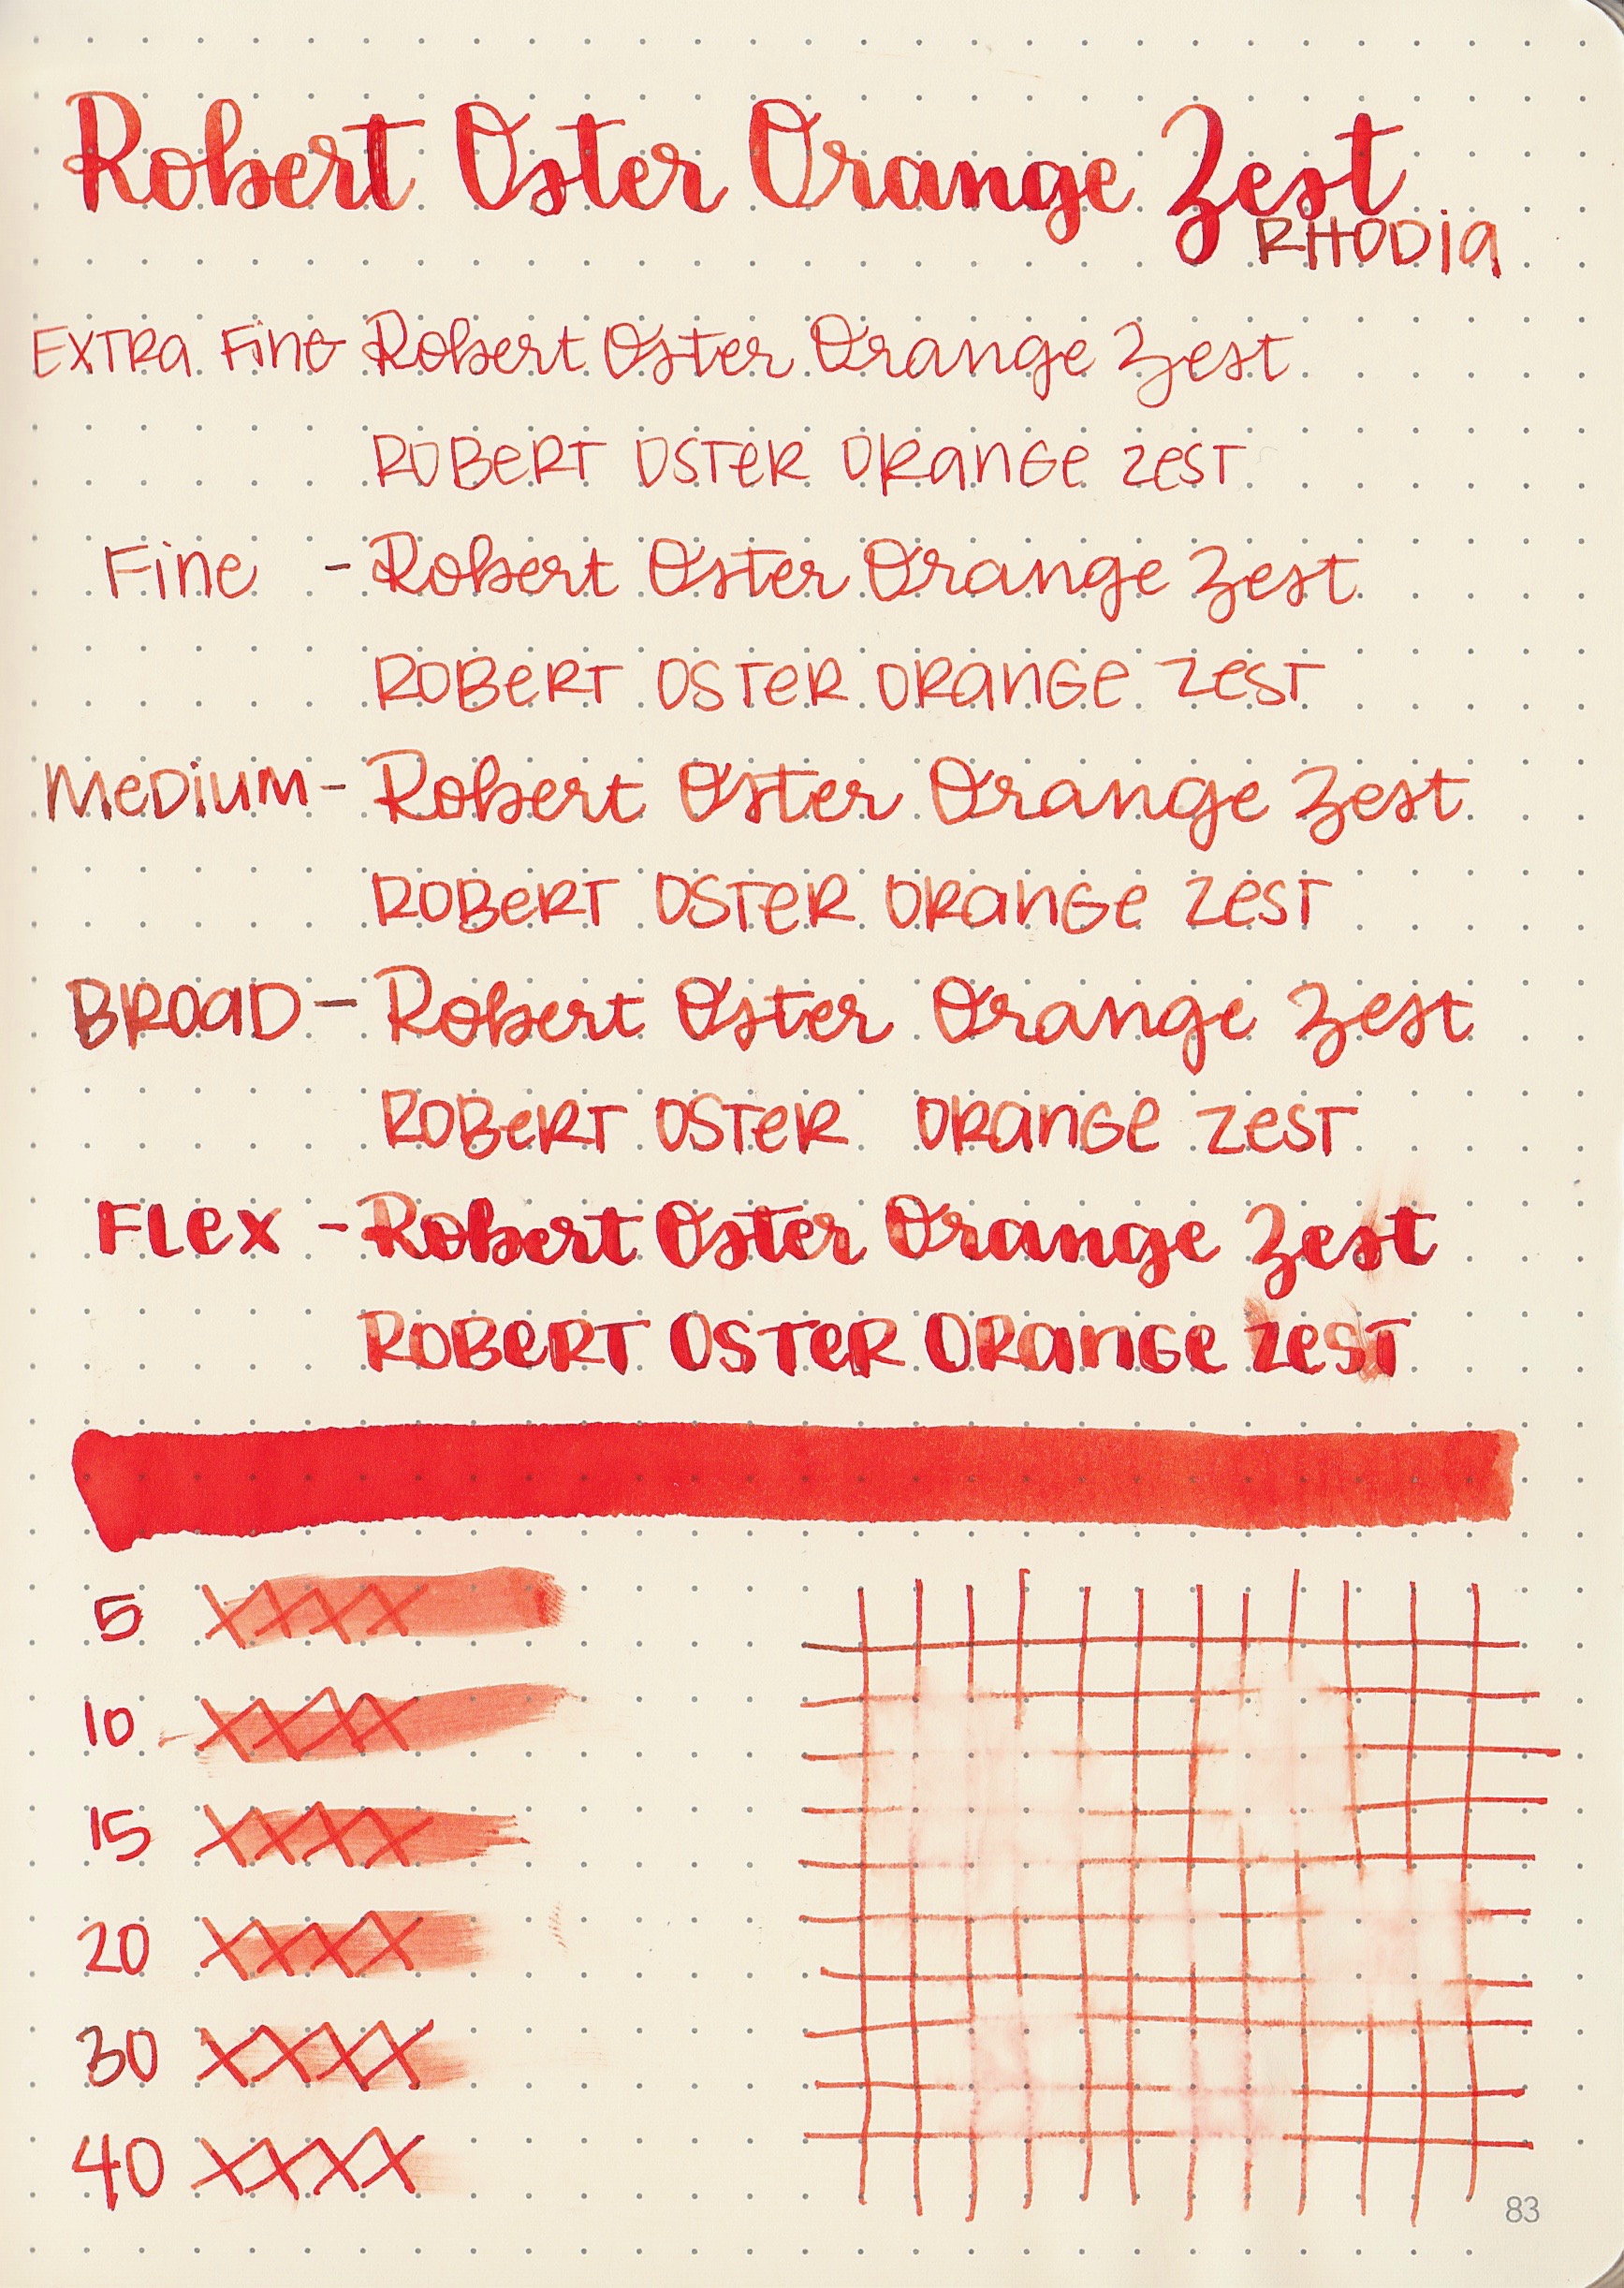 Robert Oster Orange Zest
RHODIa
EXTRa Fine - Robert Oster Orange Zest
ROBeRT OSTeR ORanGe ZeST
Fine - Robert Oster Orange Zest
ROBeRT OSTeR ORanGe ZeST
MeDiuM - Robert Oster Orange Zest
ROBeRT OSTeR ORanGe ZeST
BROaD - Robert Oster Orange Zest
ROBeRT OSTeR ORanGe ZeST
FLex - Robert Oster Orange Zest
ROBeRT OSTeR ORanGe ZeST
5 XXXX
10 XXXX
15 XXXX
20 XXXX
30 XXXX
40 XXXX
83